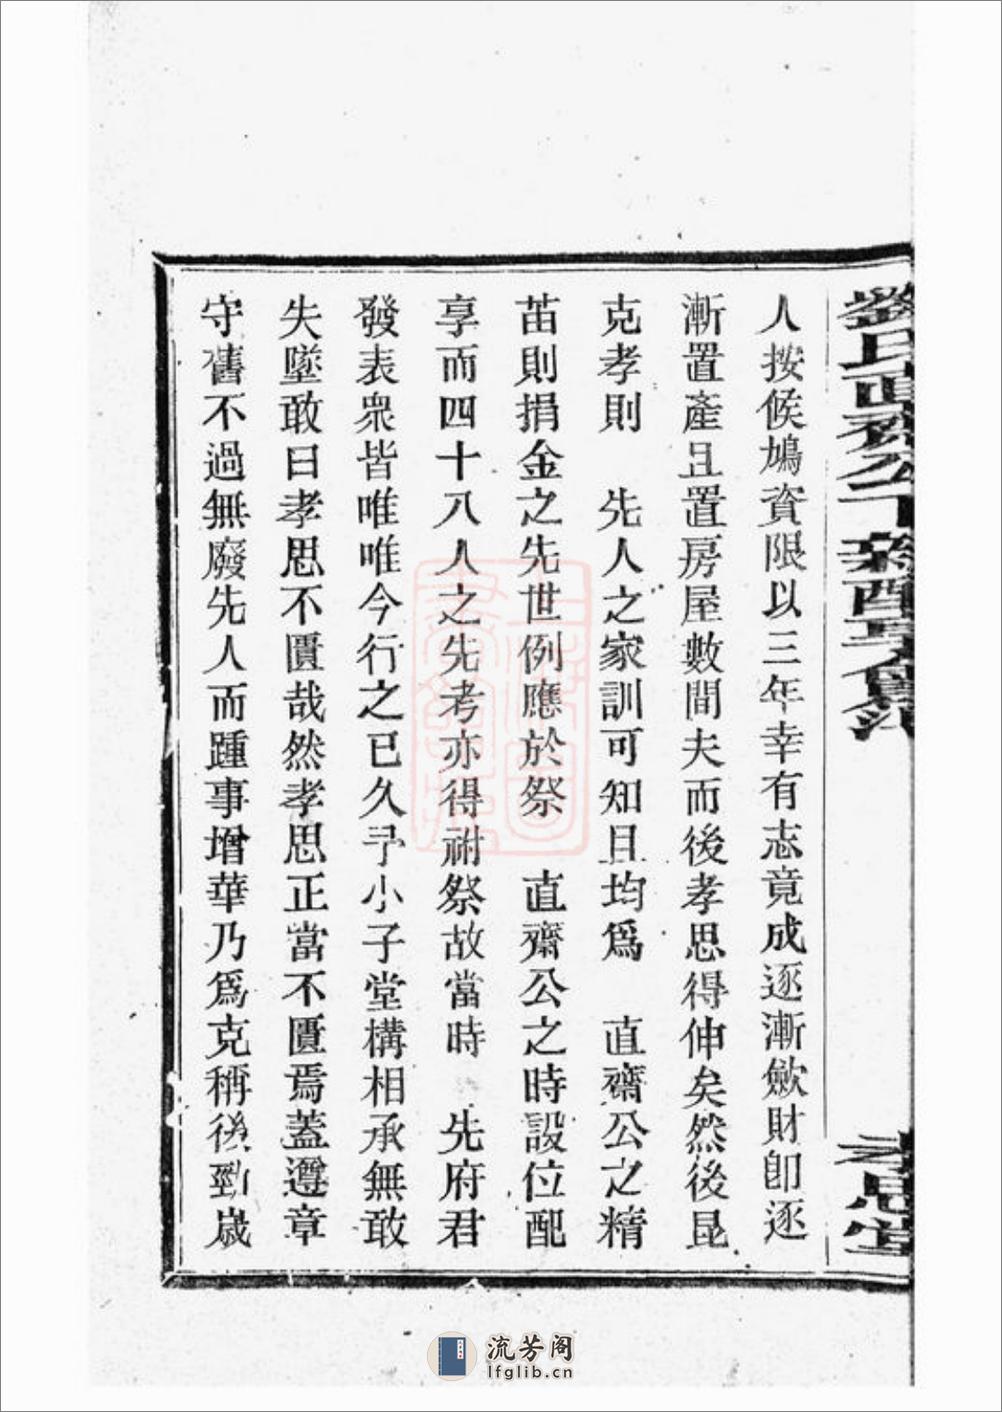 人按候鳩資限以三年幸有志竟成逐漸斂財卽逐
漸置產且置房屋數間夫而後孝思得伸矣然後昆
克孝則　先人之家訓可知且均爲　直齋公之精
苗則捐金之先世例應於祭　直齋公之時設位配
享而四十八人之先考亦得祔祭故當時　先府君
發表衆皆唯唯今行之已久予小子堂構相承無敢
失墜敢曰孝思不匱哉然孝思正當不匱焉蓋遵章
守舊不過無廢先人而踵事增華乃爲克稱後勁歲
孝思堂
流芳阁
lfglib.cn